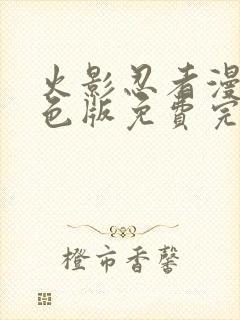 火影忍者漫
色版免费完
橙市香馨